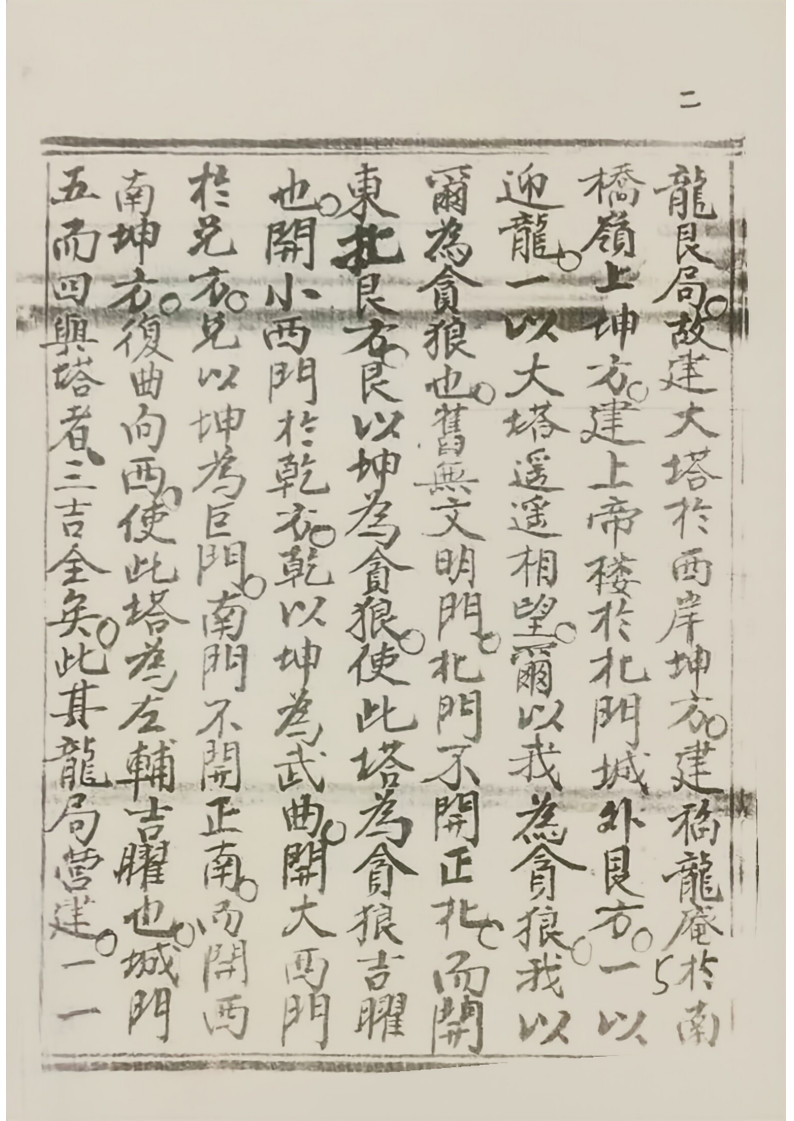 二
龍艮局。故建大塔於西岸坤方。建福龍庵於南
橋嶺上坤方。建上帝楼於北門城外艮方。一以
迎龍。一以大塔遥遥相望。爾以我為貪狼我以
爾為貪狼也。舊無文明門。北門不開正北。而開
東北艮方。艮以坤為貪狼。使此塔為貪狼吉曜
也。開小西門於乾方。乾以坤為武曲。開大西門
於兌方。兌以坤為巨門。南門不開正南。而開西
南坤方。復曲向西。使此塔為左輔吉曜也。城門
五而四與塔者、三吉全矣。此其龍局营建。一一
5